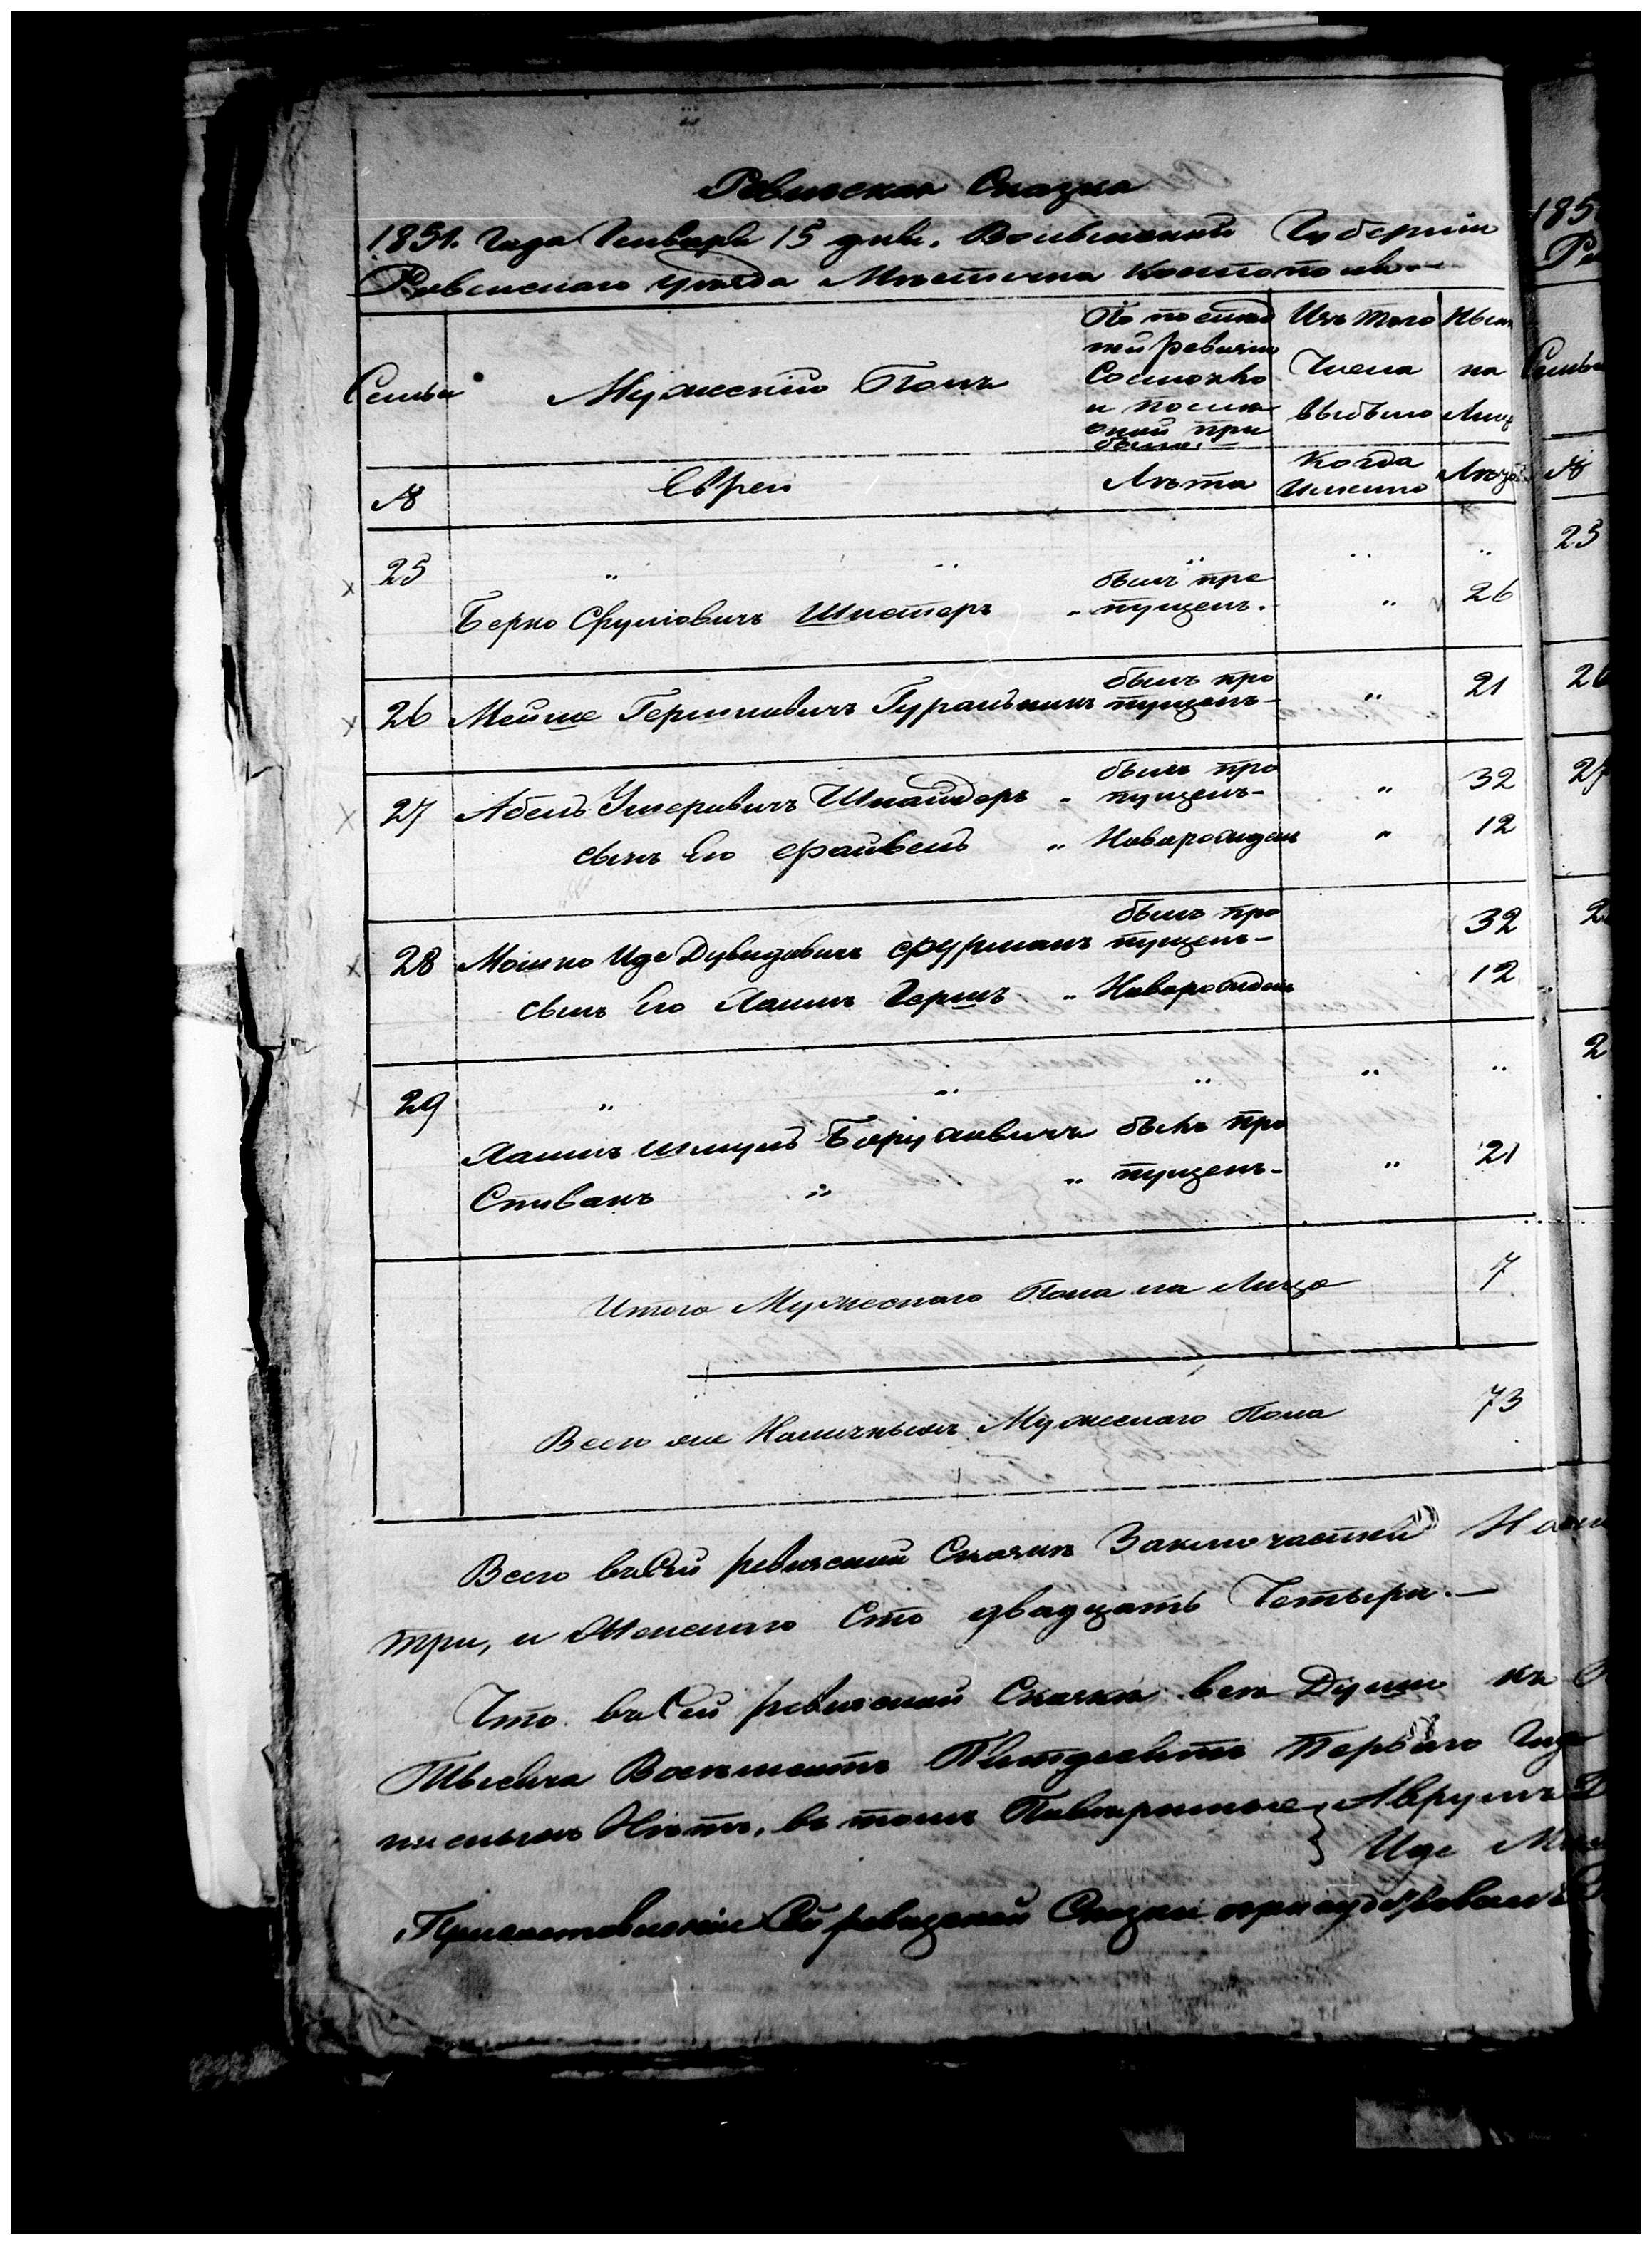 Ревизская Сказка
1851. Года Генваря 15 дня. Волынской Губерніи
Ровенскаго уѣзда Мѣстечка Костополя
Семьи
Мужескій Полъ
По послѣд
ней ревизіи
Состояло
и послѣ
оной при
было.
Изъ того
Числа
выбыло
Нынѣ
на
Лицо
№
Евреи
Лѣта
Когда
Именно
Лѣта
25 " " " " "
Берко Сруліовичъ Шнаперъ " былъ про
пущенъ. " 26
26 Мейше Гершковичъ Гуральникъ былъ про
пущенъ " 21
27 Абель Ушеровичъ Шнайдеръ " былъ про
пущенъ " 32
сынъ Его Файвель " Новорожденъ " 12
28 Мошко Иде Дувидовичъ Фурманъ былъ про
пущенъ 32
сынъ Его Хаимъ Гершъ " Новорожденъ 12
29 " " " " "
Хаимъ Шмуль Боруховичъ былъ про
Спивакъ " " пущенъ " 21
Итого Мужескаго Пола на Лицо 7
Всего же Наличныхъ Мужескаго Пола 73
Всего въ Сей ревизской Сказкѣ Заключается
три, и Женскаго Сто двадцать Четыре.
Что въ Сей ревизской Сказкѣ всѣ Души къ
Тысяча Восемьсотъ Пятдесятъ Перваго Года
Нѣтъ, въ томъ Аврумъ
Иде
Сей ревизской Сказки
185
25
26
27
2
2